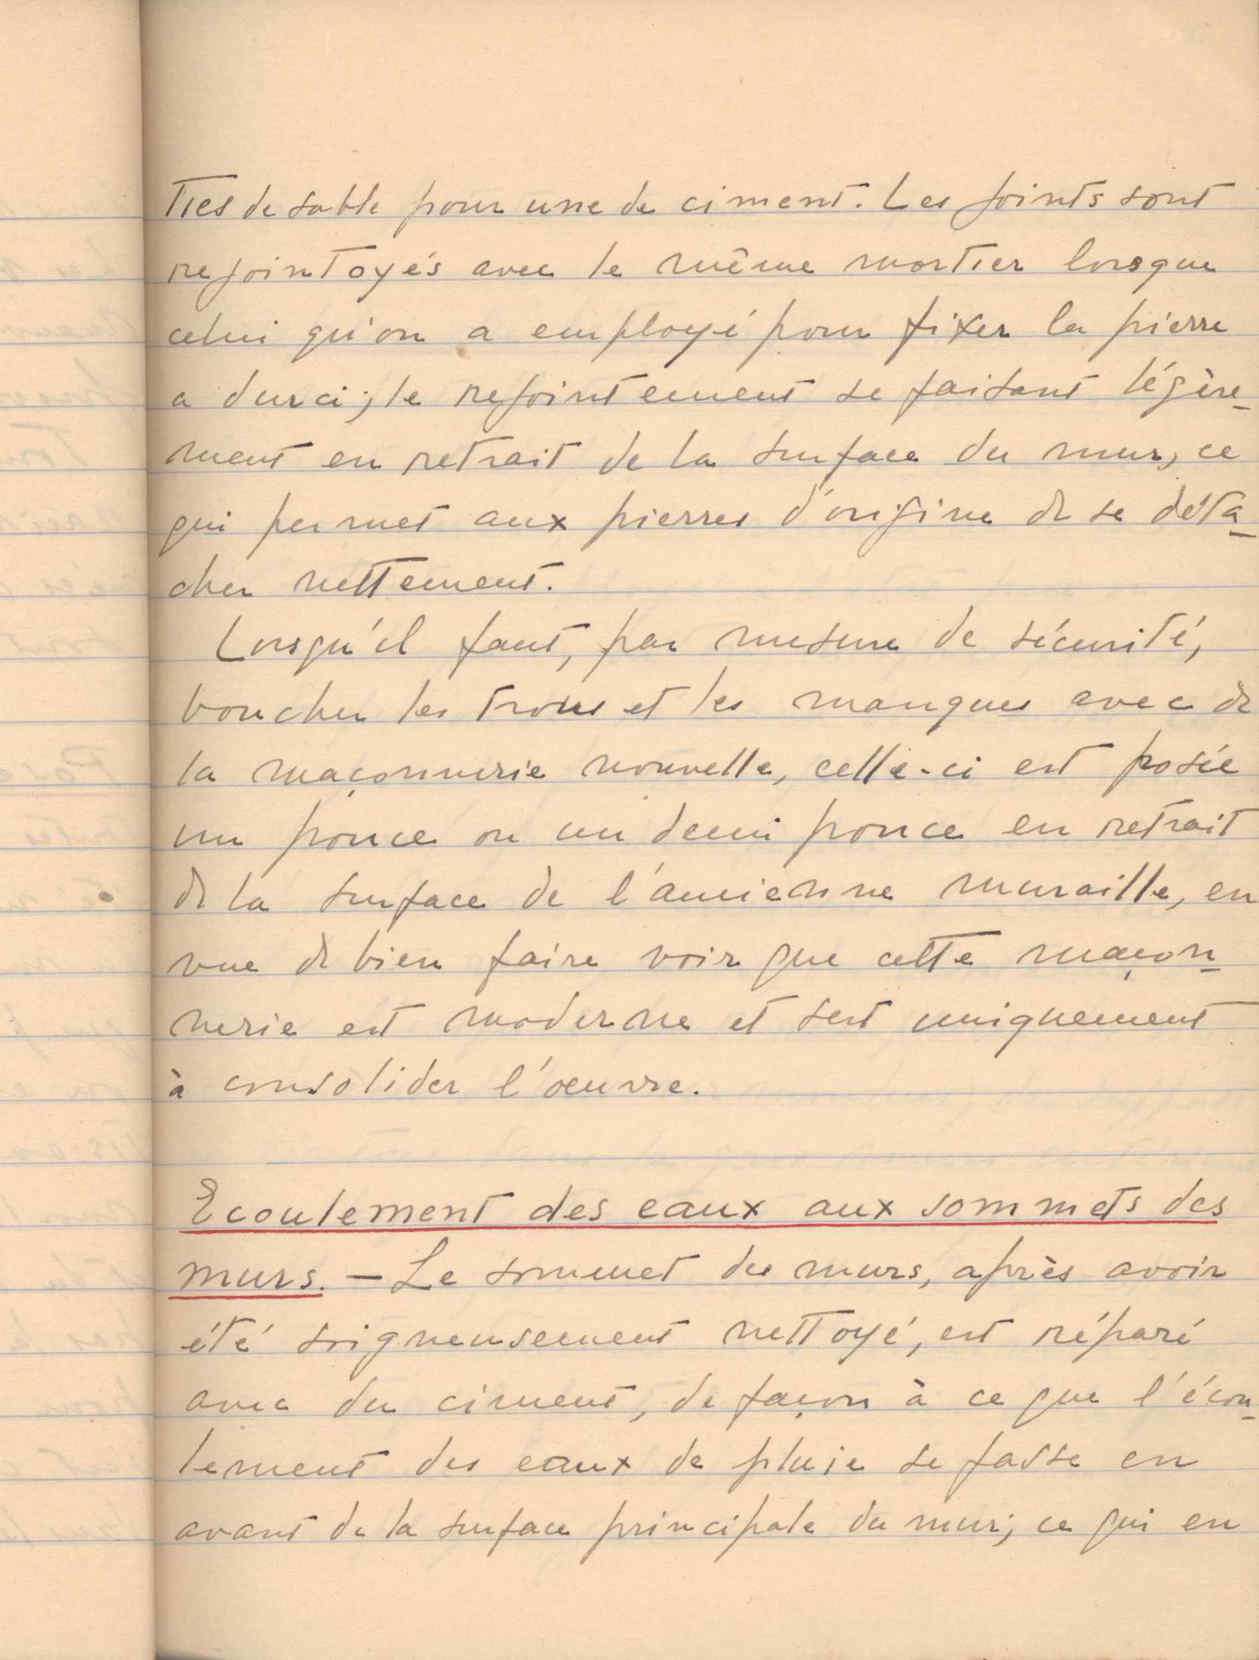 ties de sable pour une de ciment. Les joints sont
rejointoyés avec le même mortier lorsque
celui qu'on a employé pour fixer la pierre
a durci; le rejointement se faisant légère-
ment en retrait de la surface du mur, ce
qui permet aux pierres d'origine de se déta-
cher nettement.
Lorsqu'il faut, par mesure de sécurité,
boucher les trous et les manques avec de
la maçonnerie nouvelle, celle-ci est posée
un pouce ou un demi pouce en retrait
de la surface de l'ancienne muraille, en
vue de bien faire voir que cette maçon-
nerie est moderne et sert uniquement
à consolider l'oeuvre.
Ecoulement des eaux aux sommets des
murs. — Le sommet des murs, après avoir
été soigneusement nettoyé, est réparé
avec du ciment, de façon à ce que l'écou-
lement des eaux de pluie se fasse en
avant de la surface principale du mur; ce qui en